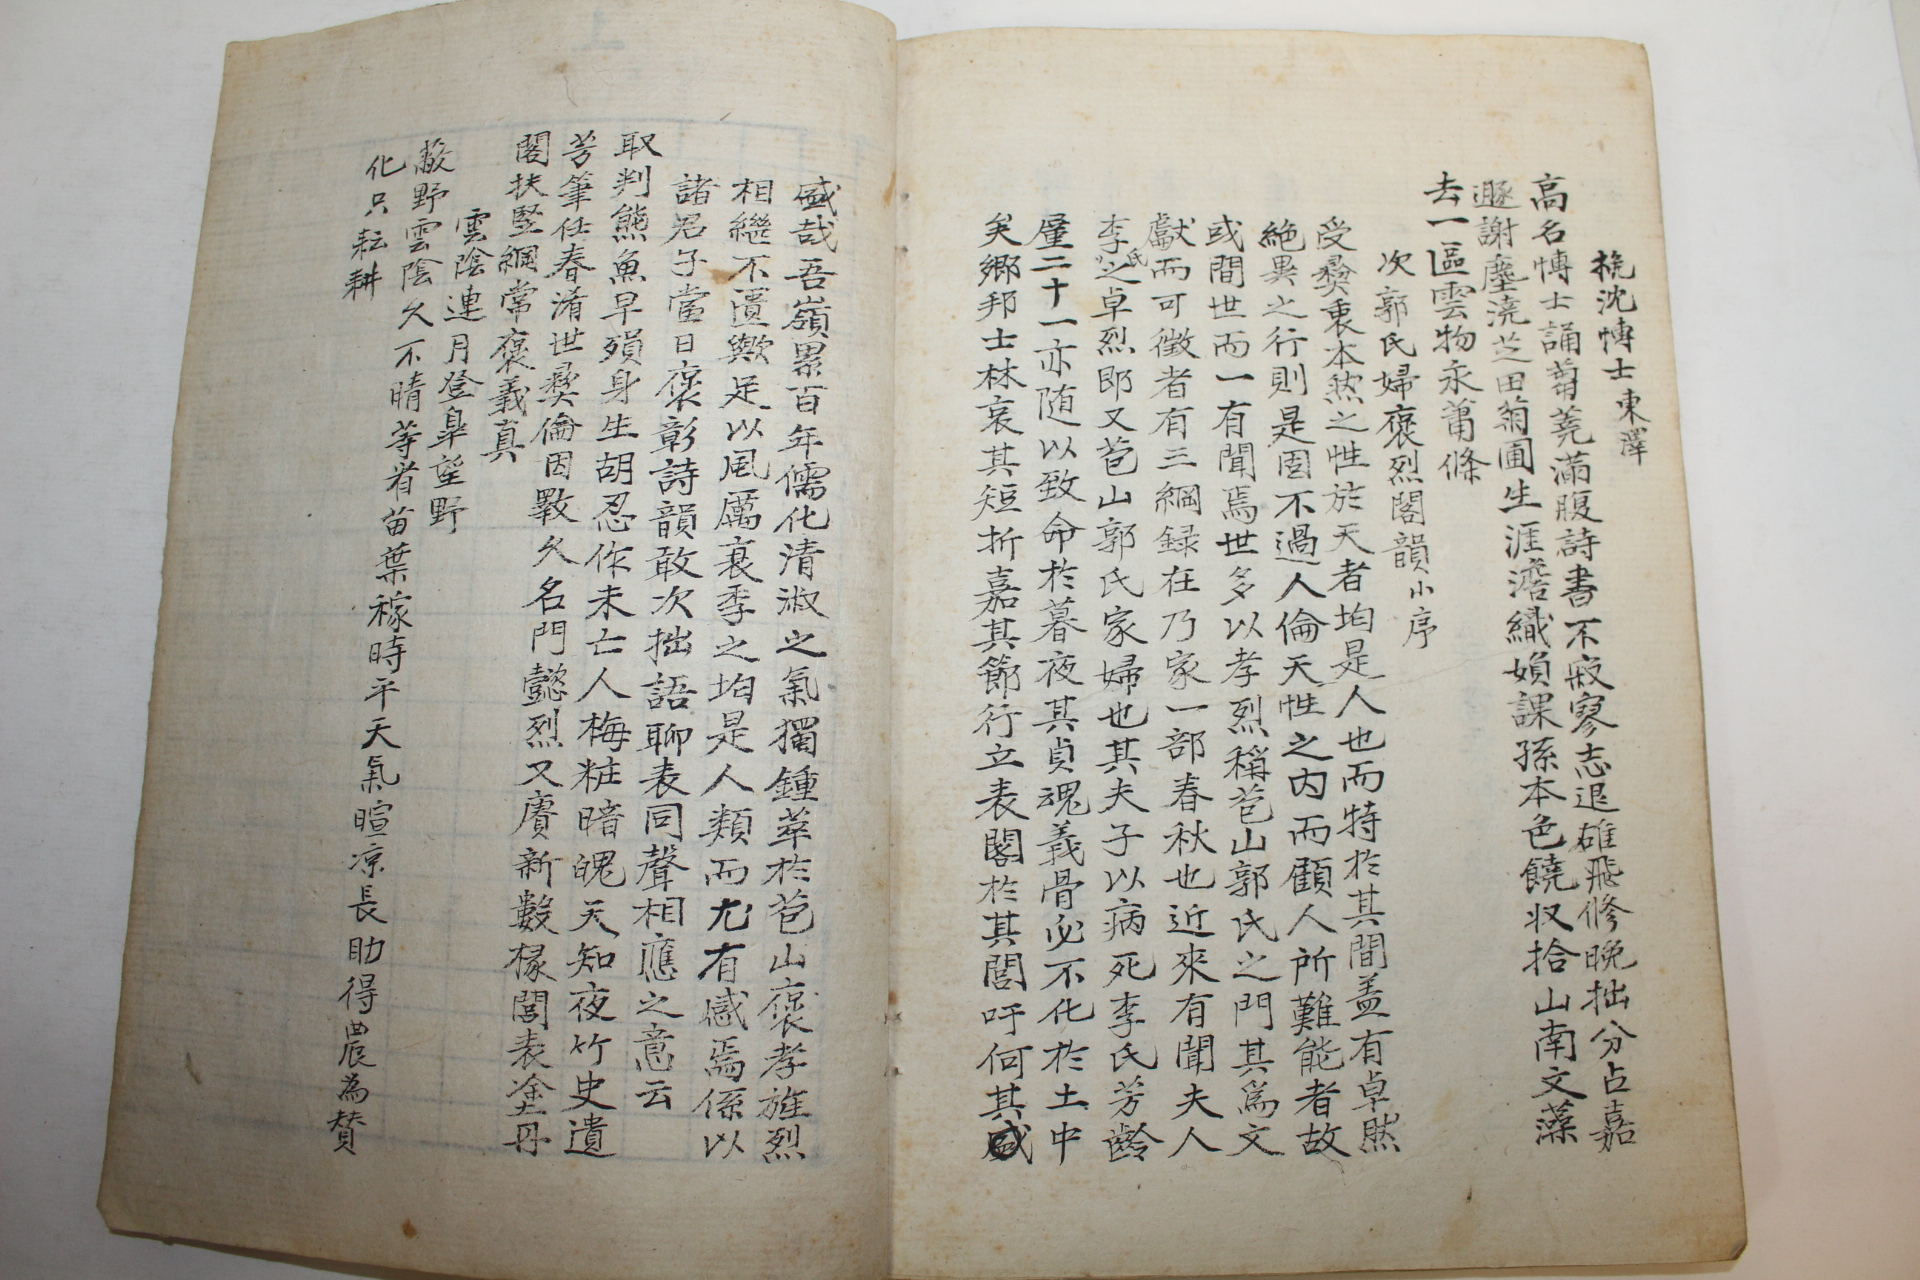 挽沈博士東澤
高名博士誦蒭蕘滿腹詩書不寂寥志退碓飛修晩拙分占嘉
遯謝塵澆芝田菊圃生涯澹織娟課孫本色饒収拾山南文藻
去一區雲物永蕭條
次郭氏婦褒烈閣韻小序
受彛衷本然之性於天者均是人也而特於其間盖有卓然
絶異之行則是固不過人倫天性之内而顧人所難能者故
或間世而一有聞焉世多以孝烈稱苞山郭氏之門其爲文
獻而可徵者有三綱録在乃家一部春秋也近來有聞夫人
李氏之卓烈郎又苞山郭氏家婦也其夫子以病死李氏芳齡
廑二十一亦随以致命於暮夜其貞魂義骨必不化於土中
矣鄉邦士林哀其短折嘉其節行立表閣於其閭吁何其盛
盛哉吾嶺累百年儒化清淑之氣獨鍾萃於苞山褒孝旌烈
相繼不匱歟足以風厲衰季之均是人類而尤有感焉係以
諸君子當日褒彰詩韻敢次拙語聊表同聲相應之意云
取判熊魚早殞身生胡忍作未亡人梅粧暗魄天知夜竹史遺
芳筆任春淆世彛倫因斁久名門懿烈又賡新數椽閭表塗丹
閣扶竪綱常褒義真
雲陰連月登皐望野
蔽野雲陰久不晴等省苗葉稼時平天氣暄凉長助得農為賛
化只耘耕